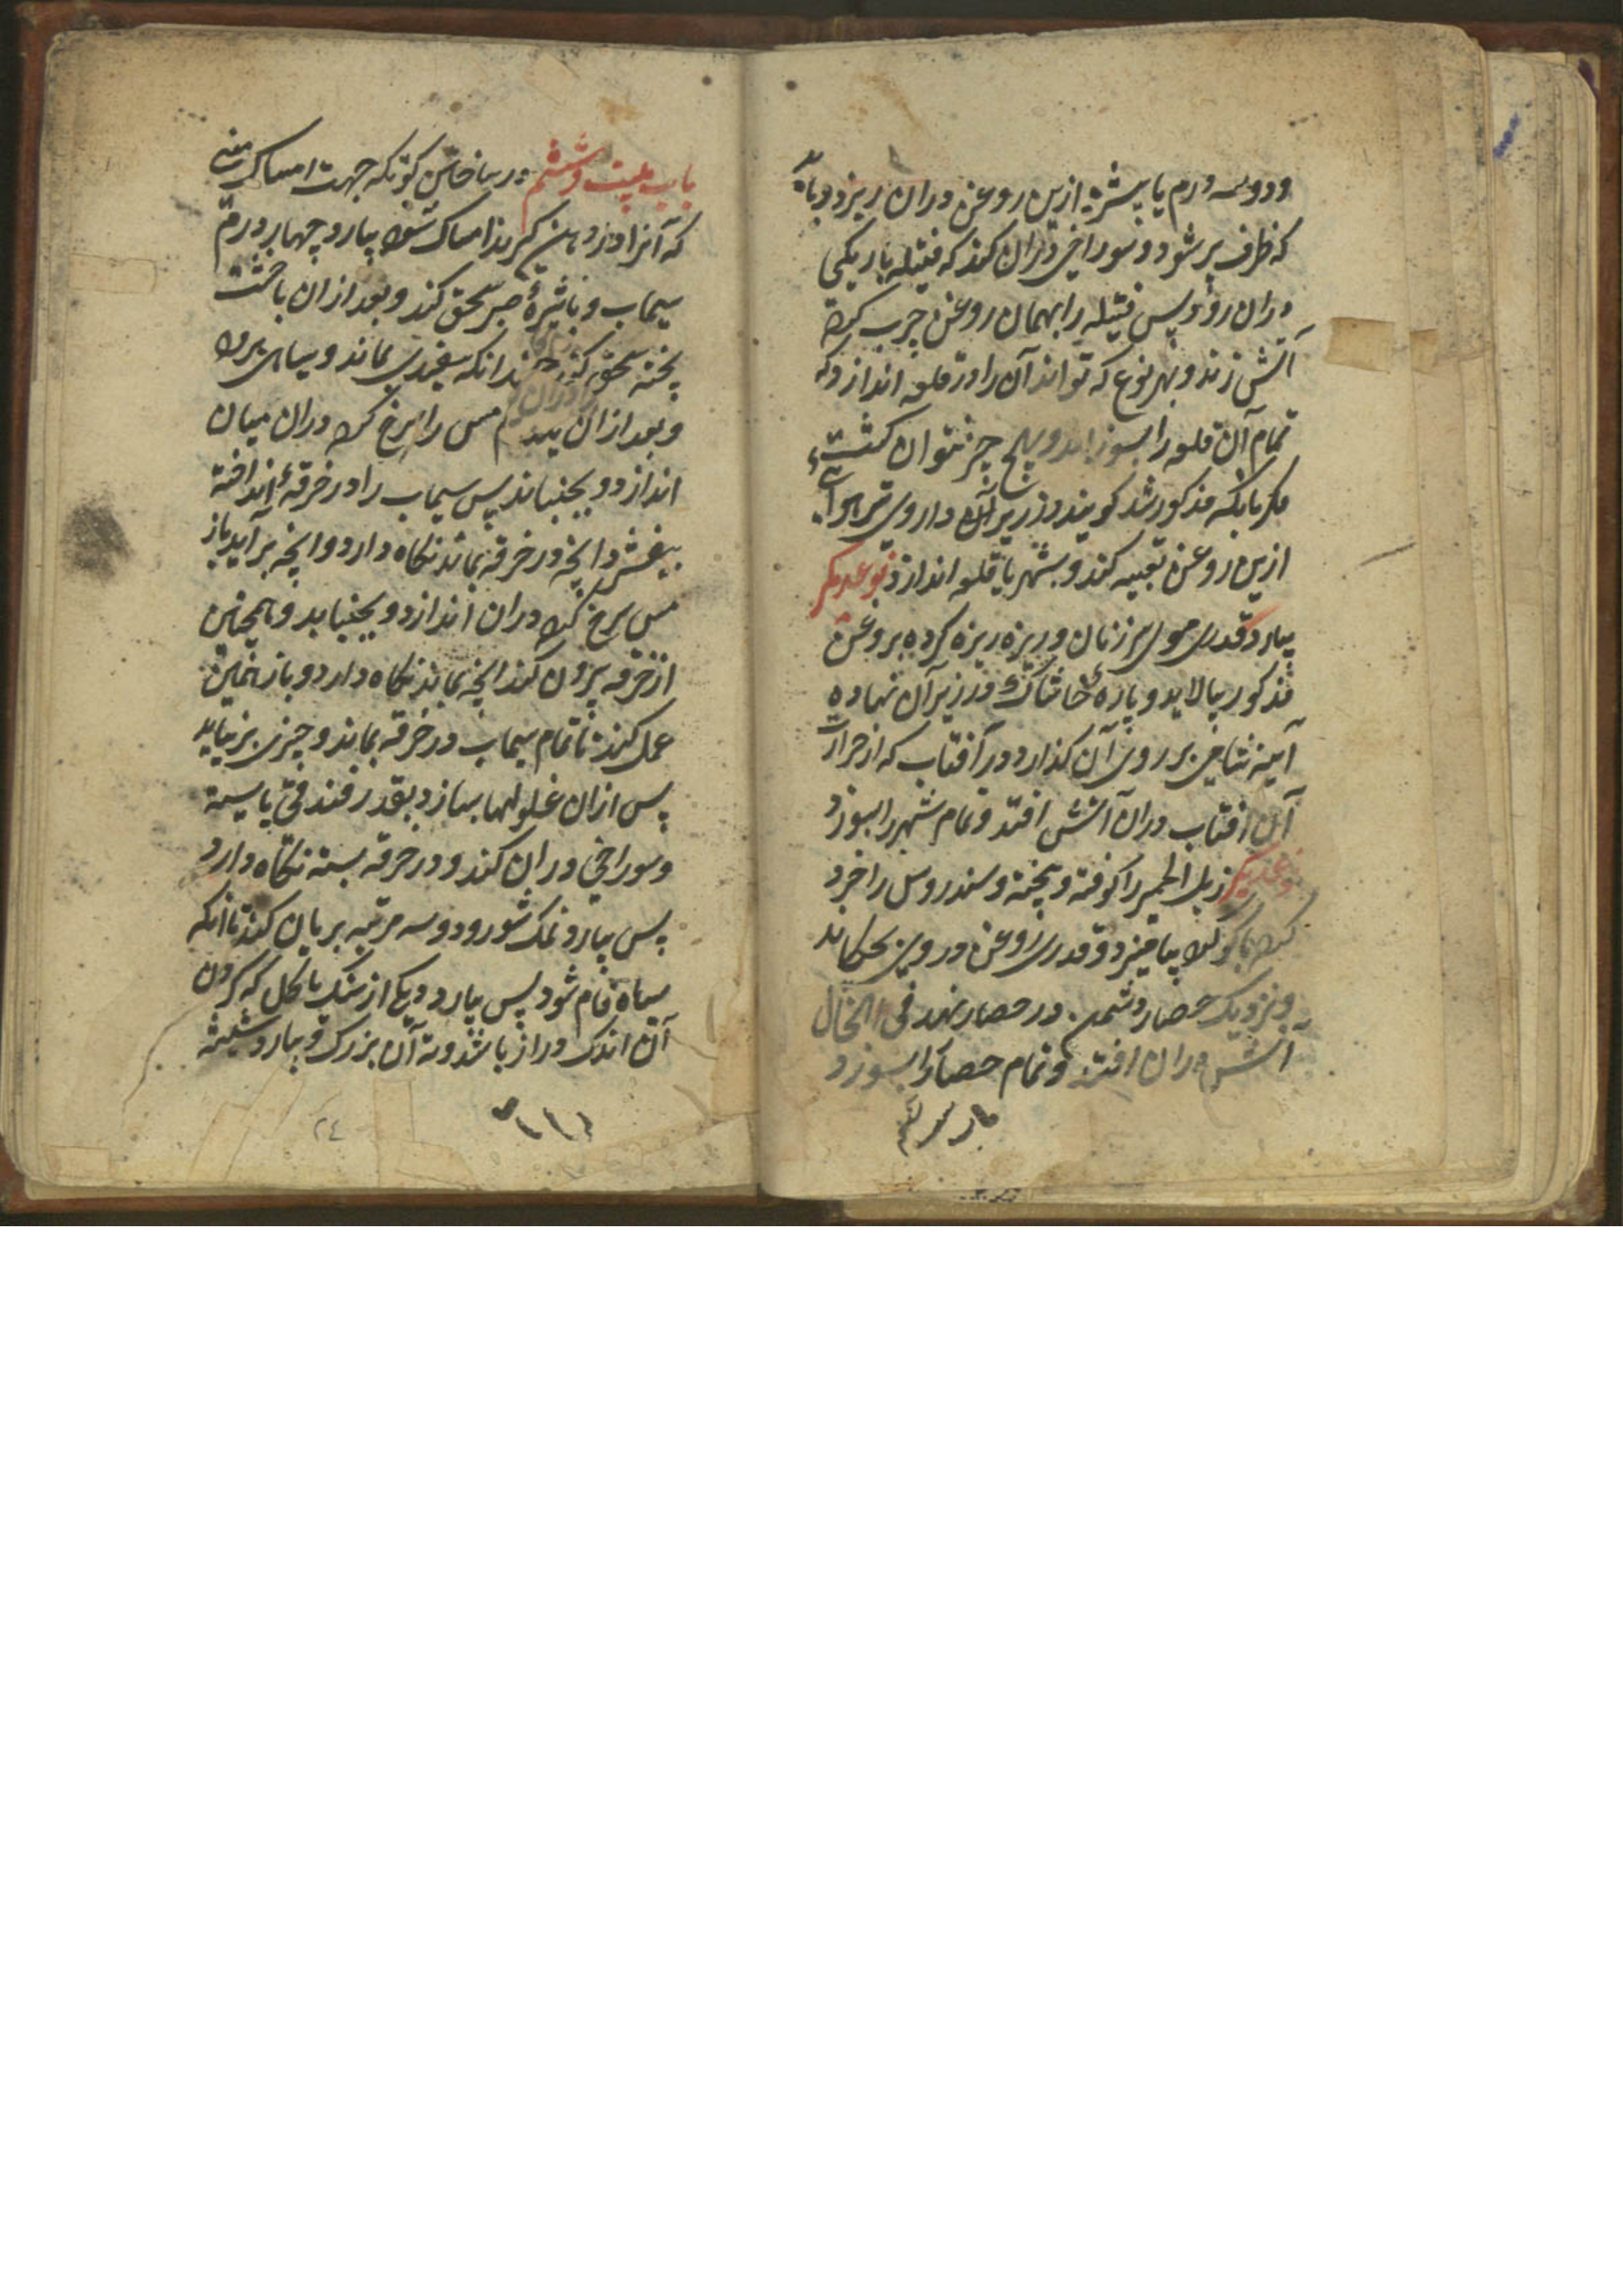 ودوسه درم یا بیشتر ازین روغن دران ریزد وباید
که ظرف پر شود و سوراخی دران کند که فتیله باریکی
دران رود پس فتیله را بهمان روغن چرب کرده
آتش زند و بهر نوع که تواند آن را در قلعه اندازد که
تمام آن قلعه را بسوزاند و بهیچ چیز نتوان کشت
مگر بانکه مذکور شد گویند در زیر آن داروی تیر هوائی
ازین روغن تعبیه کند و بشهر یا قلعه اندازد نوعدیگر
بیارد قدری موی سر زنان و ریزه ریزه کرده بروغن
مذکور بیالاید و پارهٔ خاشاک در زیر آن نهاده
آینه بر روی آن گذارد و در آفتاب که از حرارت
آن آفتاب دران آتش افتد و تمام شهر را بسوزد
نوعدیگر زبل الحمیر را کوفته و بیخته و سندروس را خرد
کرده با بیامیزد و قدری روغن در وی بچکاند
و نزدیک حصار دشمن در حصار نهد فی الحال
آتش دران افتد و تمام حصار را بسوزد
باب بیست وششم در ساختن گوتکه جهت امساک منی
که آنرا در دهن گیرند امساک شود بیارد چهار درم
سیماب و با شیرهٔ صبر سحق کند و بعد از ان با خشت
پخته سحق کند چندانکه سفیدی بماند و سیاهی برود
و بعد ازان مس را سرخ کرده دران میان
اندازد و بجنباند پس سیماب را در خرقهٔ انداخته
بیفشرد انچه در خرقه بماند نگاه دارد و انچه برآید باز
مس سرخ کرده دران اندازد و بجنباند و همچنین
از خرقه بیرون کند انچه بماند نگاه دارد و باز همین
عمل کند تا تمام سیماب در خرقه بماند و چیزی برنیاید
پس ازان غلولها بسازد بقدر فندقی یا
و سوراخی دران کند و در خرقه بسته نگاه دارد
پس بیارد نمک شور و دو سه مرتبه بریان کند تا انکه
سیاه فام شود پس بیارد دیگی از سنگ یا گل که گردن
آن اندک دراز باشد و ته آن بزرگ و بیارد شیشه
۲۴